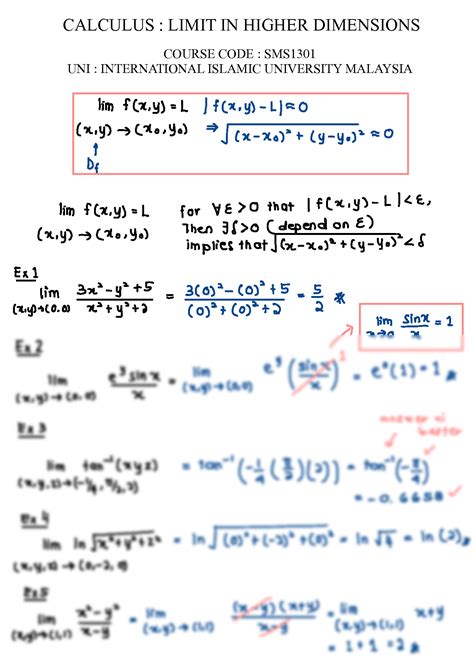 CALCULUS : LIMIT IN HIGHER DIMENSIONS
COURSE CODE : SMS1301
UNI : INTERNATIONAL ISLAMIC UNIVERSITY MALAYSIA
lim f(x,y) = L |f(x,y) - L| ≈ 0
(x,y) → (x₀,y₀) ⇒ √((x-x₀)² + (y-y₀)²) ≈ 0
↑
Df
lim f(x,y) = L for ∀ε>0 that |f(x,y) - L| < ε,
(x,y) → (x₀,y₀) Then ∃δ>0 (depend on ε)
implies that √((x-x₀)² + (y-y₀)²) < δ
Ex 1
lim (x,y)→(0,0) (3x²-y²+5)/(x²+y²+2) = (3(0)²-(0)²+5)/((0)²+(0)²+2) = 5/2
lim x→0 sinx/x = 1
Ex 2
lim (x,y)→(0,0) (e^y sinx)/x = lim (x,y)→(0,0) e^y (sinx/x) 1 = e⁰(1) = 1
Ex 3
answer
better
lim (x,y,z)→(-1/4, π/2, 2) tan⁻¹(xyz) = tan⁻¹(-1/4 (π/2)(2)) = tan⁻¹(-π/4)
= -0.6658
Ex 4
lim (x,y,z)→(0,-2,0) ln√(x²+y²+z²) = ln√((0)²+(-2)²+(0)²) = ln√4 = ln(2)
Ex 5
lim (x,y)→(1,1) (x²-y²)/(x-y) = lim (x,y)→(1,1) ((x-y)(x+y))/(x-y) = lim (x,y)→(1,1) x+y
= 1+1 = 2